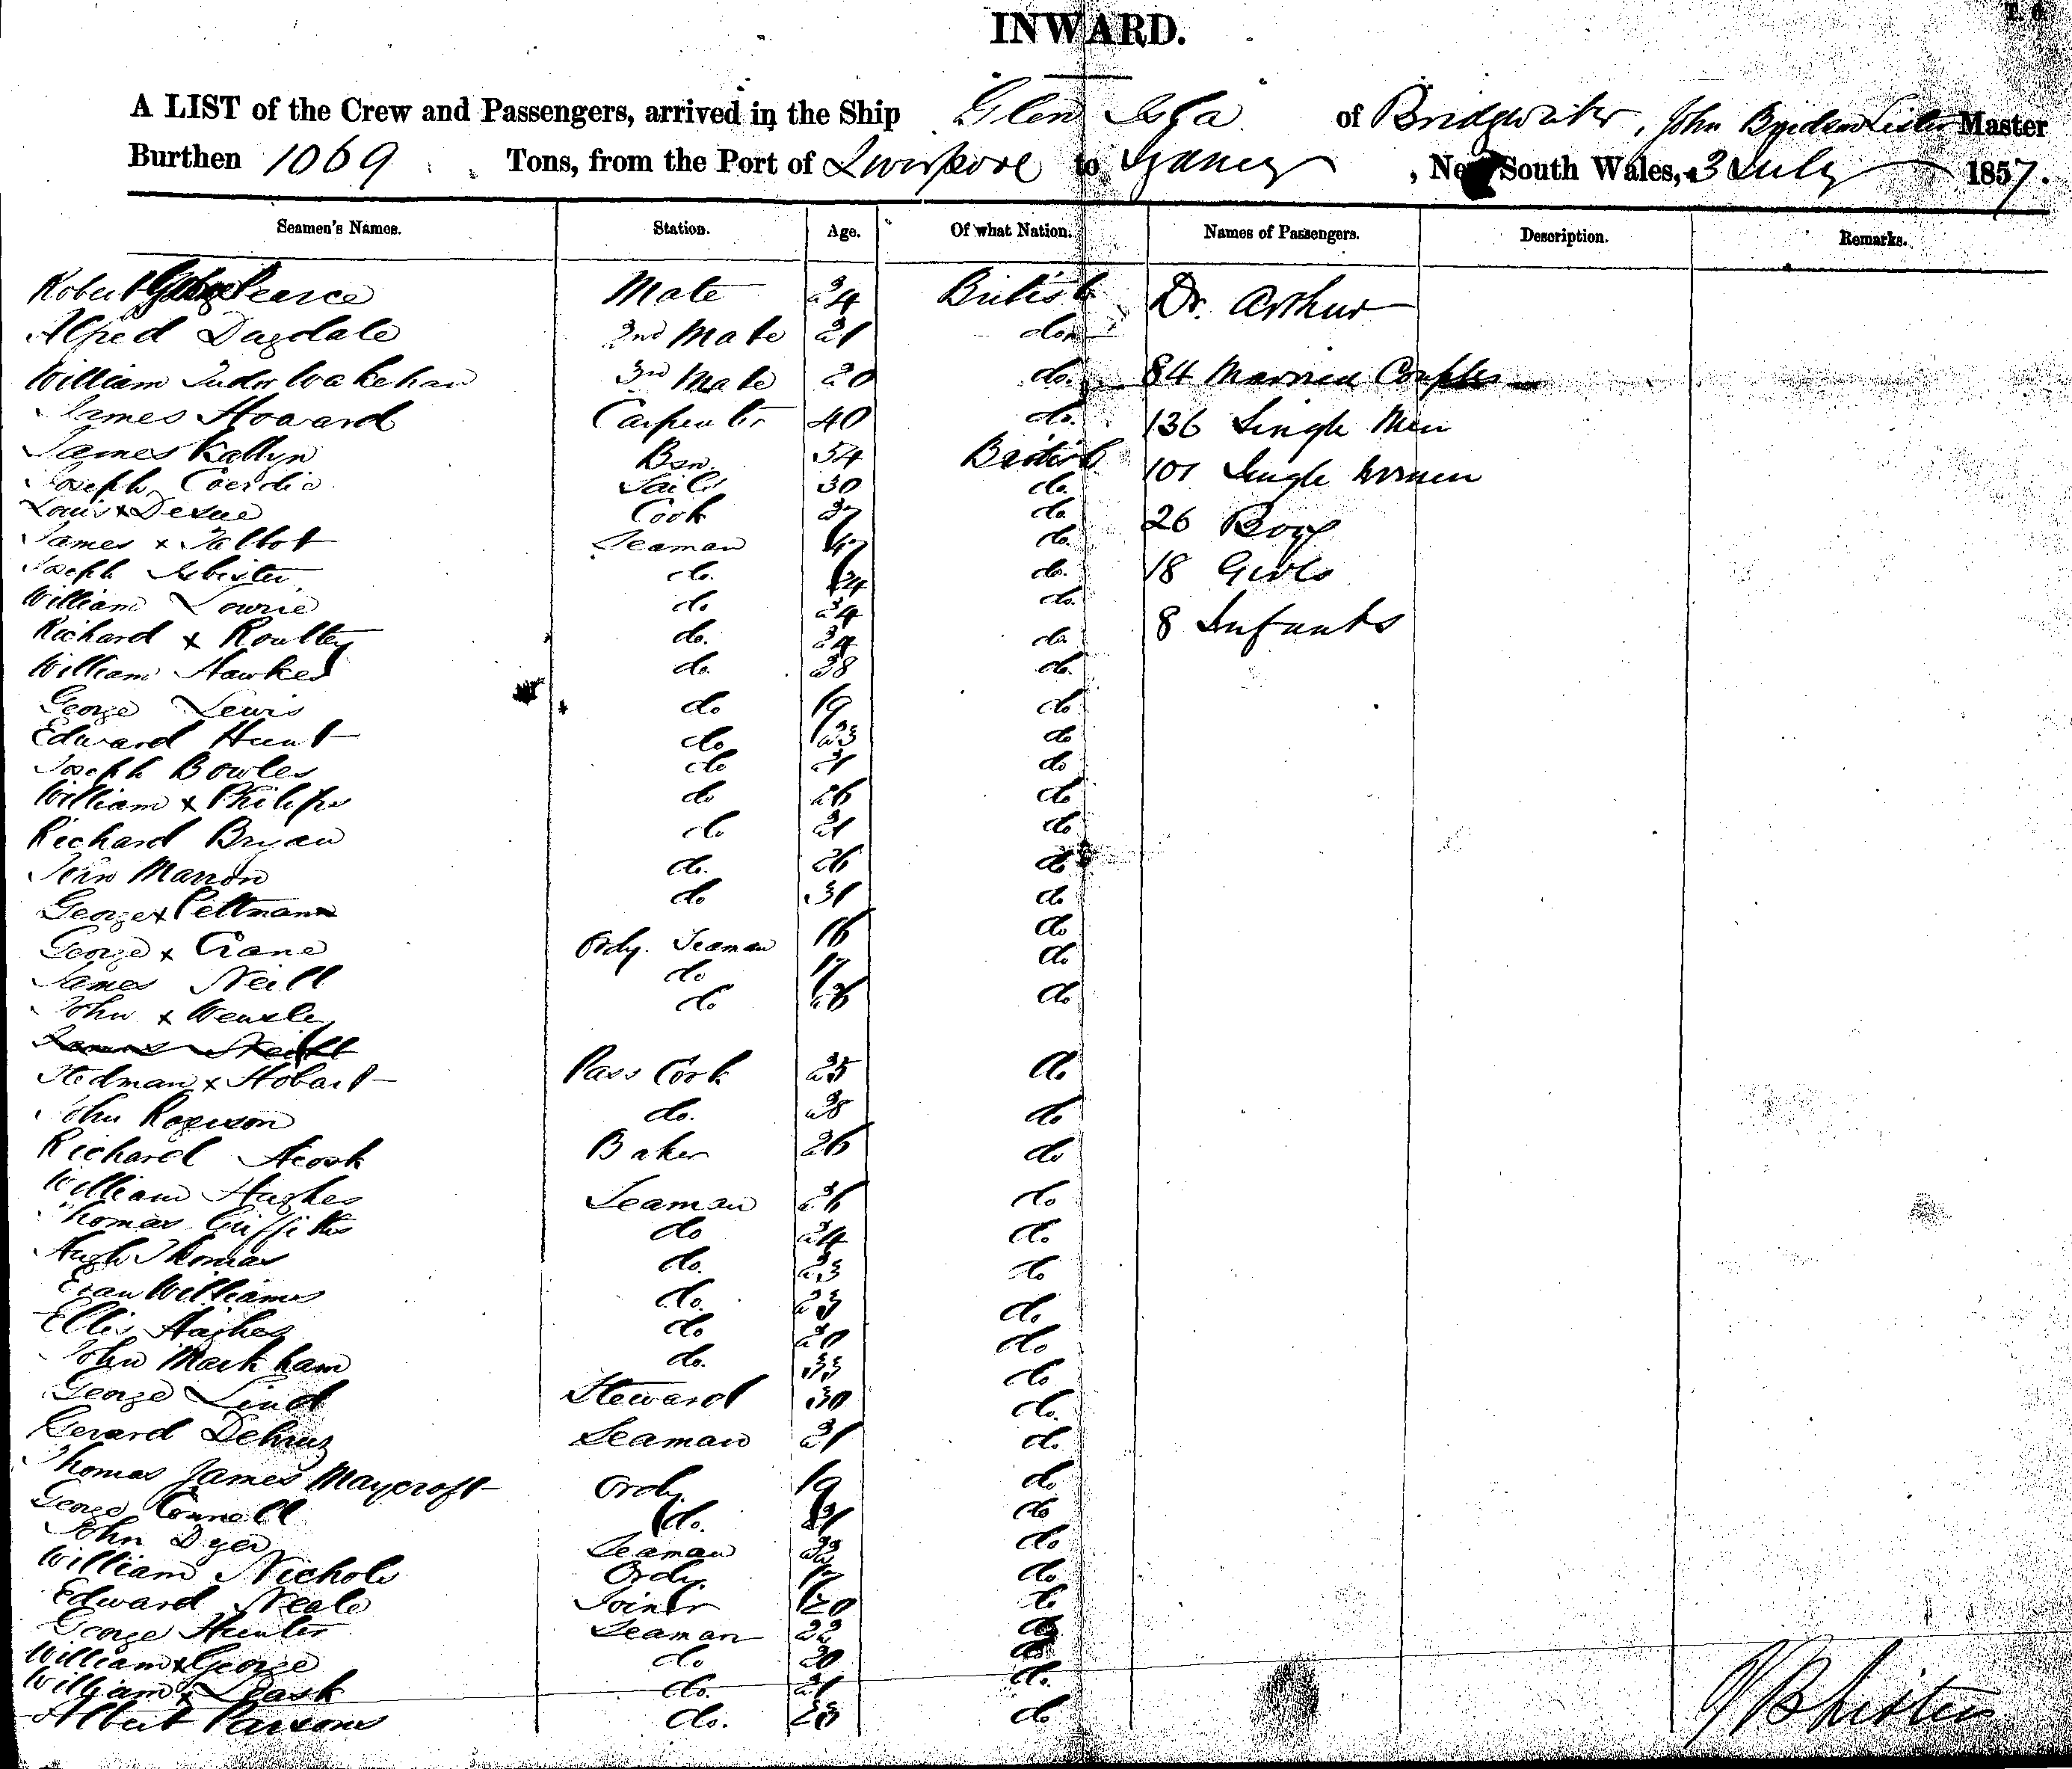 INWARD.
A LIST of the Crew and Passengers, arrived in the Ship Glen Isla of Bridgwater, John Lister Master
Burthen 1069 Tons, from the Port of Liverpool to Sydney, New South Wales, 3 July 1857.
Seamen's Names. Station. Age. Of what Nation. Names of Passengers. Description. Remarks.
Robert Pearce Mate 24 British Dr. Arthur
Alfred Dugdale 2nd Mate 21 do
William Tudor Wakeham 3rd Mate 20 do. 84 Married Couples
James Howard Carpenter 40 do. 136 Single Men
James Kallyn Bsn. 54 British 101 Single Women
Joseph Sailr 30 do.
Louis x Cook do. 26 Boys
James x Talbot Seaman do.
Joseph Isbister do. 24 do. 18 Girls
William Lowrie do 24 do.
Richard x Roultey do. 24 do. 8 Infants
William Hawkes do. 28 do.
George Lewis do 19 do
Edward Hunt do 23 do
Joseph Bowles do 21 do
William x Philips do 26 do
Richard Bryan do 21 do
John Marron do. 26 do
George x Peltman do 31 do
George x Crane Ordy. Seaman 16 do
James Neill do 17 do
John x Wensley do 26 do
James Neill
Stedman x Hobart Pass Cook 25 do
John Rogerson do. 28 do
Richard Acook Baker 26 do
William Hughes Seaman 26 do
Thomas Griffiths do 24 do.
Hugh Thomas do. 23 do
Evan Williams do. 23 do.
Ellis Hughes do 20 do
John Markham do. 33 do
George Lind Steward 30 do.
Gerard Seaman 21 do.
Thomas James Maycroft Ordy. 19 do
George Connell do. 21 do
John Dyer Seaman 22 do
William Nichols Ordy. do
Edward Neale Joiner 20 do
George Hunter Seaman 22 do
William x George do 20 do
William x Leask do. 21 do.
Albert Parsons do. 23 do
J B Lister